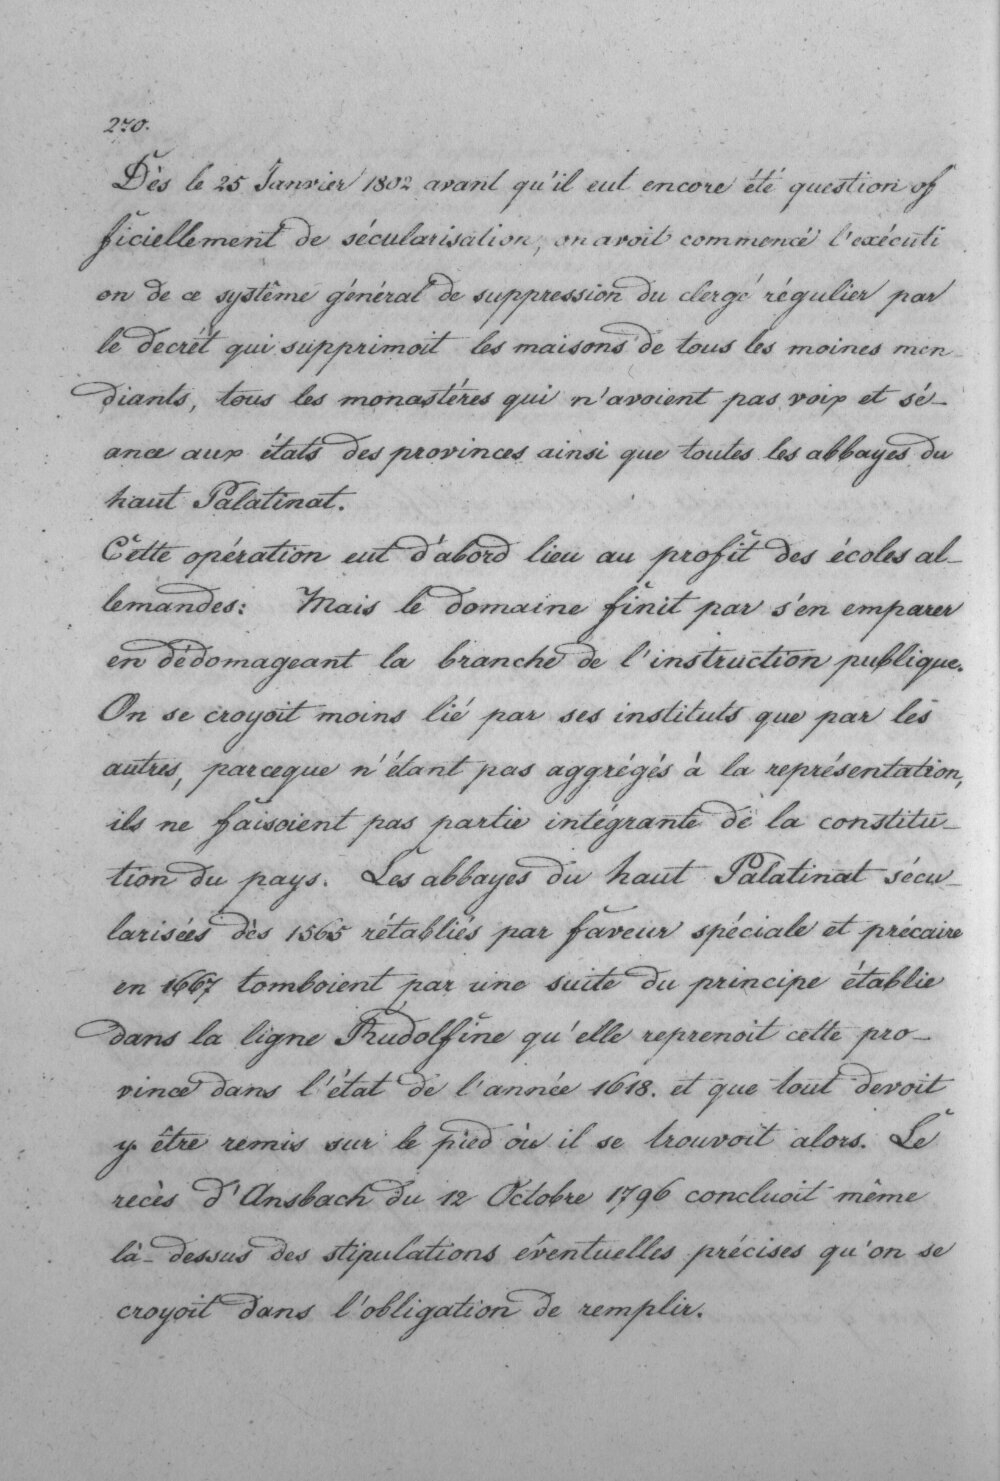 270.
Dès le 25 Janvier 1802 avant qu'il eut encore été question of
ficiellement de sécularisation, on avoit commencé l'exécuti
on de ce systême général de suppression du clergé régulier par
le decrét qui supprimoit les maisons de tous les moines men
diants, tous les monastéres qui n'avoient pas voix et sé-
ance aux états des provinces ainsi que toutes les abbayes du
haut Palatinat.
Cette opération eut d'abord lieu au profit des écoles al-
lemandes: Mais le domaine finit par s'en emparer
en dédomageant la branche de l'instruction publique.
On se croyoit moins lié par ses instituts que par les
autres, parceque n'étant pas aggrégés à la représentation,
ils ne faisoient pas partie intégrante de la constitu-
tion du pays. Les abbayes du haut Palatinat sécu-
larisées dès 1565 rétabliés par faveur spéciale et précaire
en 1667 tomboient par une suite du principe établie
dans la ligne Rudolfine qu'elle reprenoit cette pro-
vince dans l'état de l'année 1618. et que tout devoit
y être remis sur le pied où il se trouvoit alors. Le
recès d'Ansbach du 12 Octobre 1796 concluoit même
là-dessus des stipulations éventuelles précises qu'on se
croyoit dans l'obligation de remplir.